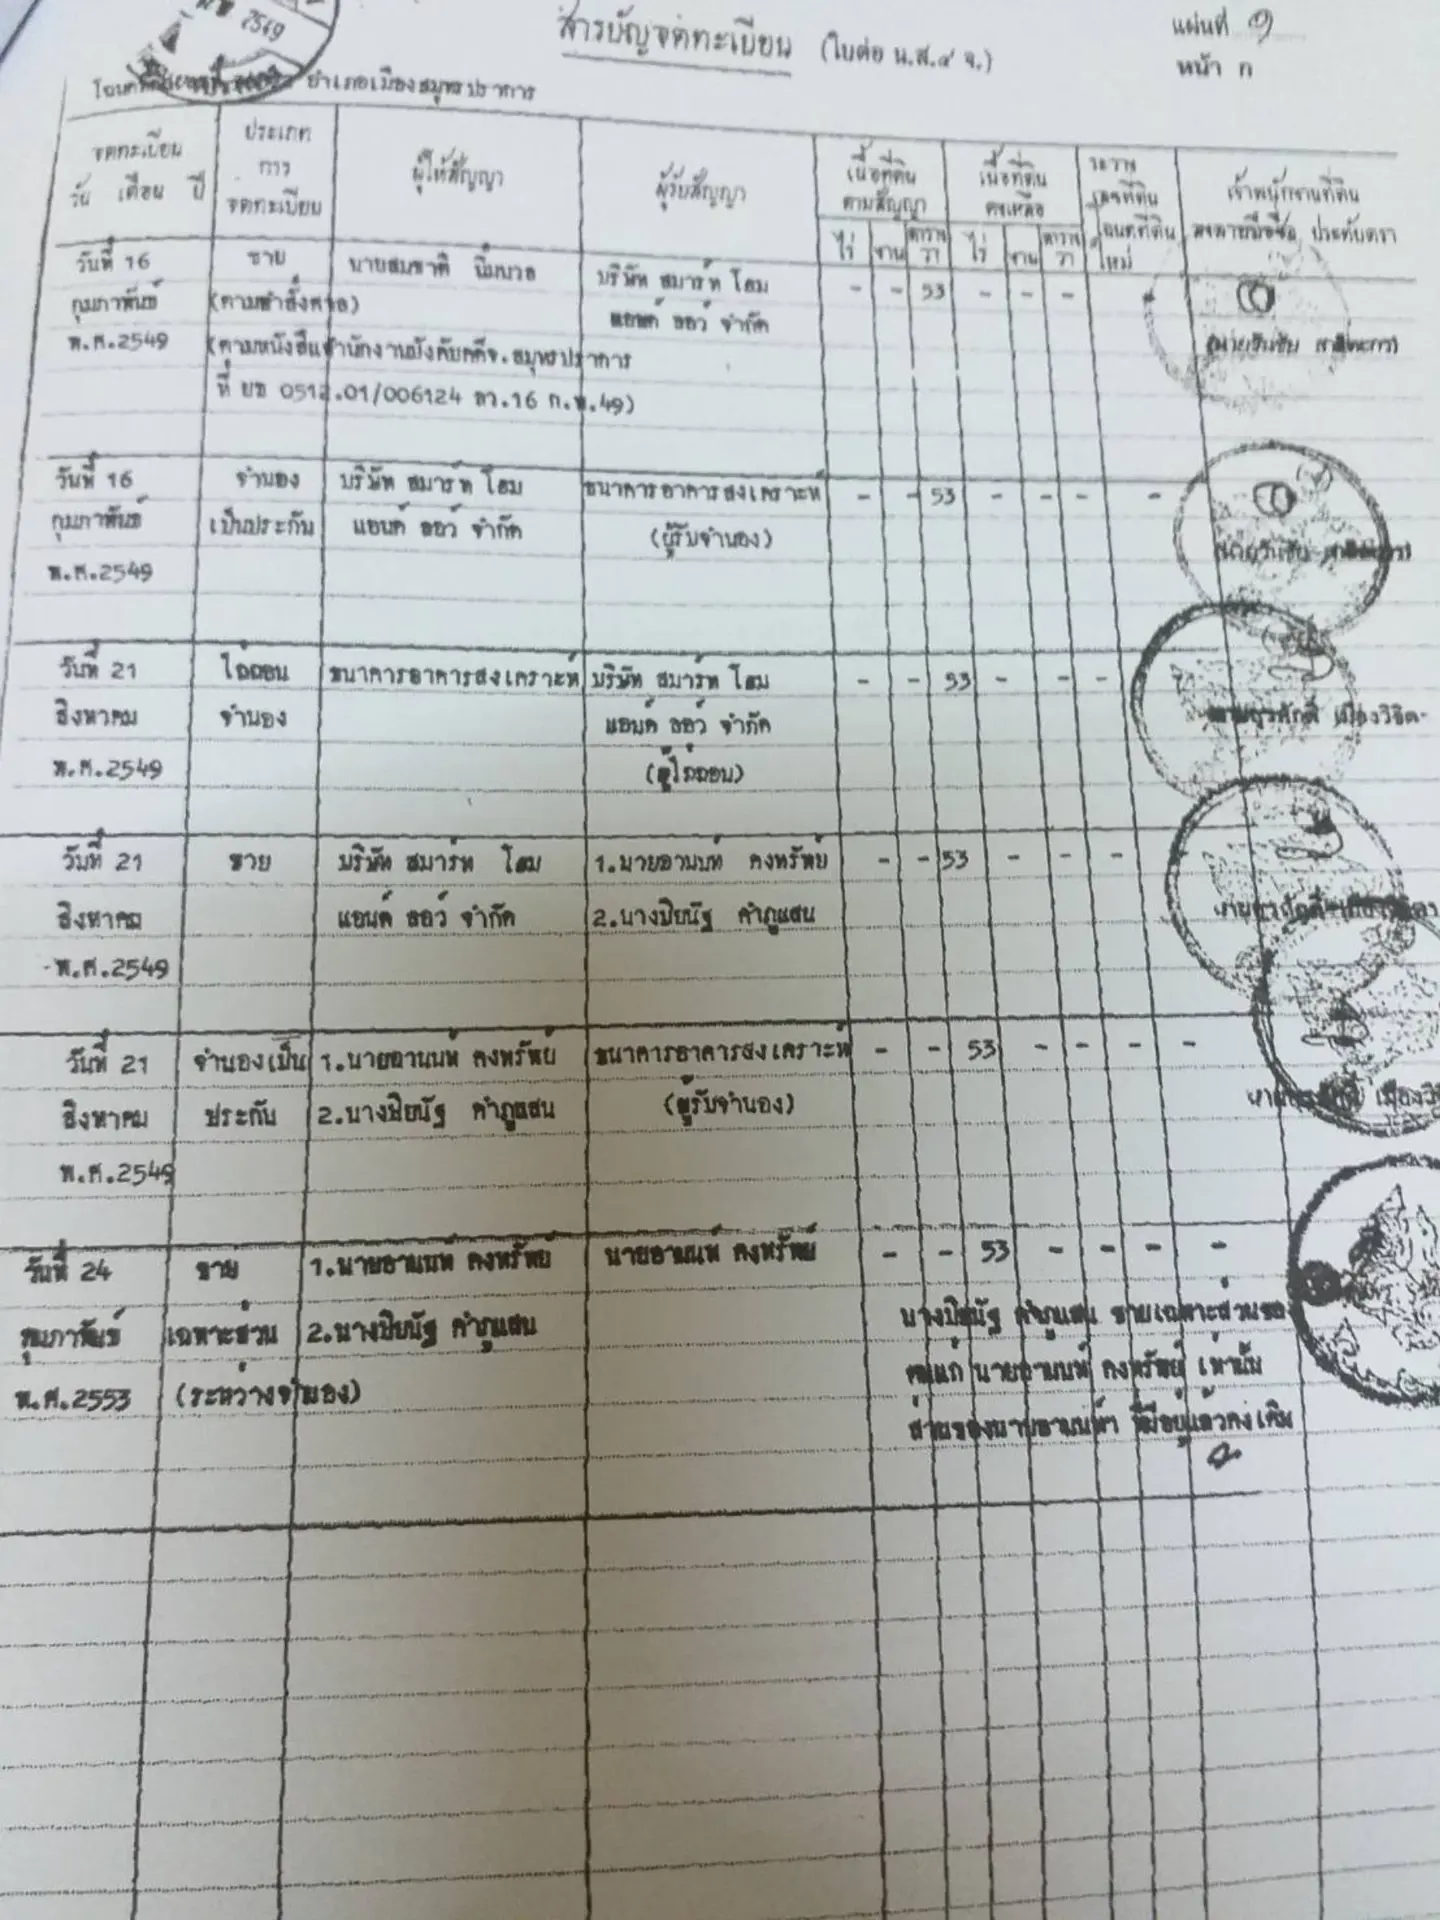 2549
สารบัญจดทะเบียน (ใบต่อ น.ส.๔ จ.)
แผ่นที่ 9
หน้า ก
อำเภอเมืองสมุทรปราการ
จดทะเบียน วัน เดือน ปี
ประเภท การ จดทะเบียน
ผู้ให้สัญญา
ผู้รับสัญญา
เนื้อที่ดิน ตามสัญญา
ไร่ งาน ตาราง วา
เนื้อที่ดิน คงเหลือ
ไร่ งาน ตาราง วา
ระวาง เลขที่ดิน โฉนดที่ดิน ใหม่
เจ้าพนักงานที่ดิน ลงลายมือชื่อ ประทับตรา
วันที่ 16 ขาย นายสมชาติ นิ่มนวล บริษัท สมาร์ท โฮม - - 53 - - -
กุมภาพันธ์ (ตามคำสั่งศาล) แอนด์ ลอว์ จำกัด
พ.ศ.2549 (ตามหนังสือสำนักงานบังคับคดีจ.สมุทรปราการ
ที่ ยธ 0512.01/006124 ลว.16 ก.พ.49)
วันที่ 16 จำนอง บริษัท สมาร์ท โฮม ธนาคารอาคารสงเคราะห์ - - 53 - - - -
กุมภาพันธ์ เป็นประกัน แอนด์ ลอว์ จำกัด (ผู้รับจำนอง)
พ.ศ.2549
วันที่ 21 ไถ่ถอน ธนาคารอาคารสงเคราะห์ บริษัท สมาร์ท โฮม - - 53 - - -
สิงหาคม จำนอง แอนด์ ลอว์ จำกัด
พ.ศ.2549 (ผู้ไถ่ถอน)
วันที่ 21 ขาย บริษัท สมาร์ท โฮม 1.นายอานนท์ คงทรัพย์ - - 53 - - - -
สิงหาคม แอนด์ ลอว์ จำกัด 2.นางปิยนัฐ คำภูแสน
พ.ศ.2549
วันที่ 21 จำนองเป็น 1.นายอานนท์ คงทรัพย์ ธนาคารอาคารสงเคราะห์ - - 53 - - - -
สิงหาคม ประกัน 2.นางปิยนัฐ คำภูแสน (ผู้รับจำนอง)
พ.ศ.2549
วันที่ 24 ขาย 1.นายอานนท์ คงทรัพย์ นายอานนท์ คงทรัพย์ - - 53 - - - -
กุมภาพันธ์ เฉพาะส่วน 2.นางปิยนัฐ คำภูแสน นางปิยนัฐ คำภูแสน ขายเฉพาะส่วนของ
พ.ศ.2553 (ระหว่างจำนอง) ตนแก่ นายอานนท์ คงทรัพย์ เท่านั้น
ส่วนของนายอานนท์ฯ ที่มีอยู่แล้วคงเดิม